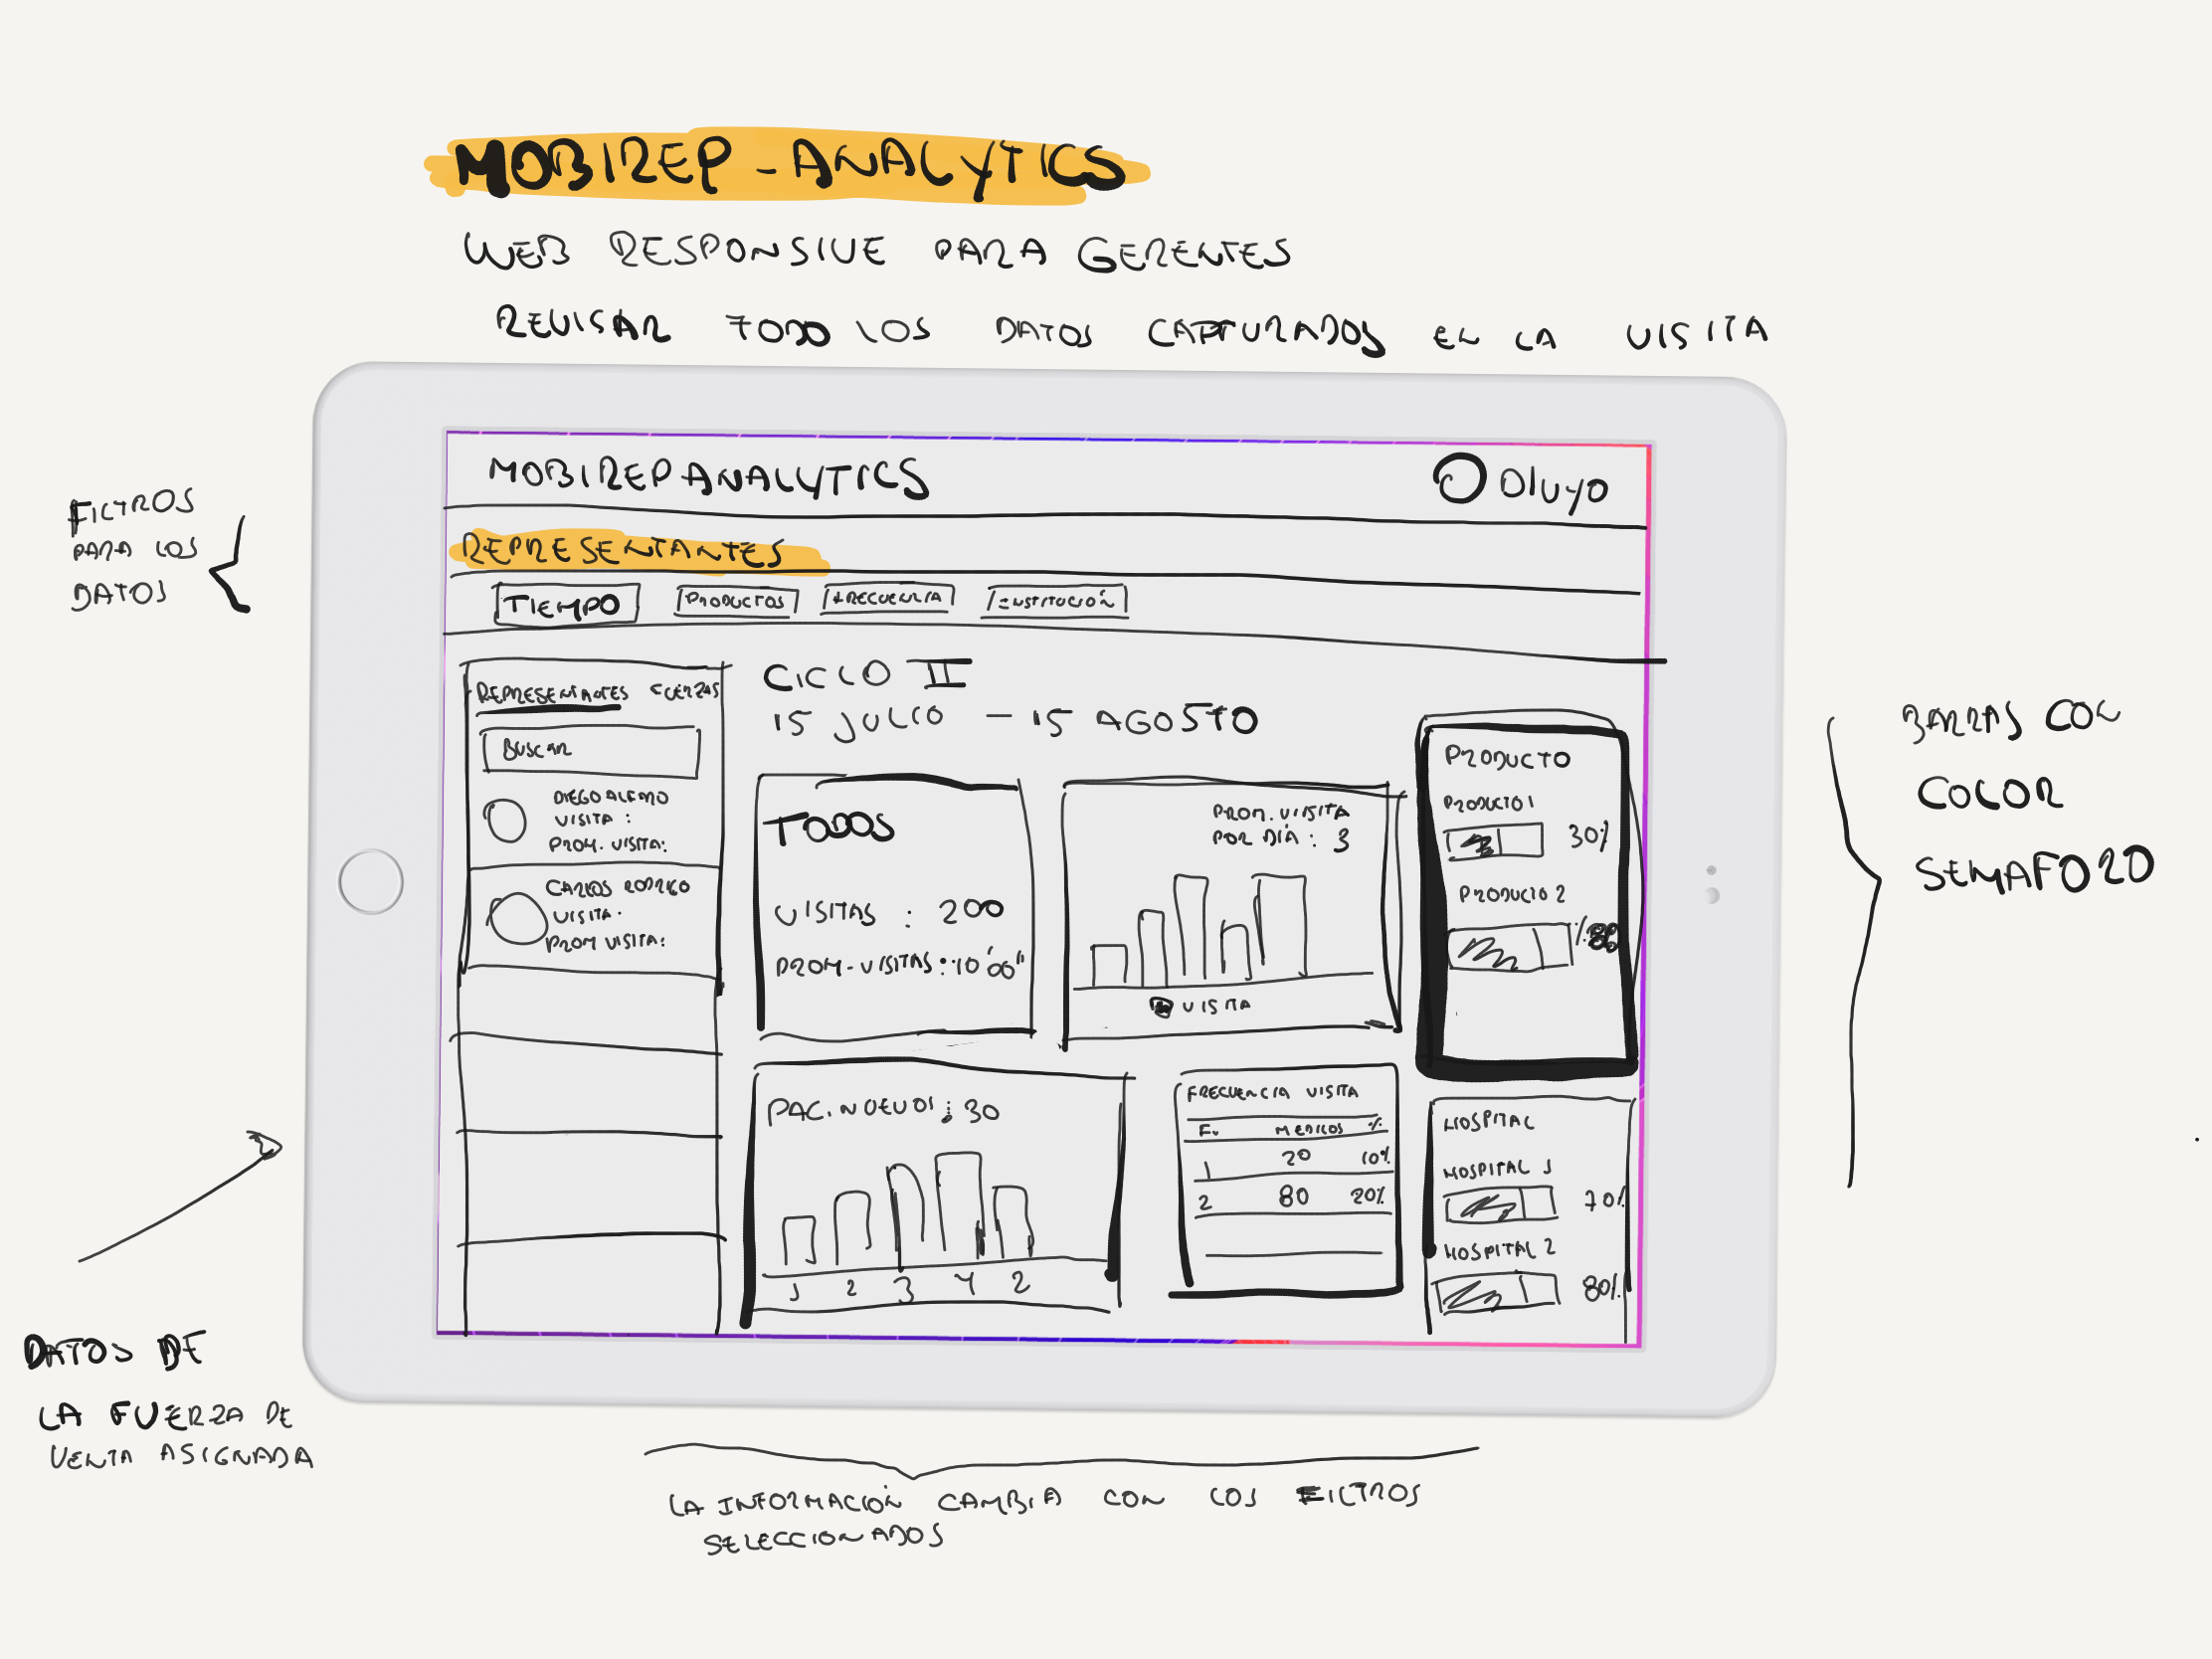 MOBIREP - ANALYTICS
WEB RESPONSIVE PARA GERENTES
REVISAR TODO LOS DATOS CAPTURADOS EN LA VISITA
FILTROS
PARA LOS
DATOS
MOBIREP ANALYTICS
REPRESENTANTES
TIEMPO PRODUCTOS FRECUENCIA INSTITUCIÓN
REPRESENTANTES FUERZAS
BUSCAR
VISITA :
PROM. VISITA:
CARLOS RODRIGO
VISITA:
PROM VISITA:
CICLO II
15 JULIO - 15 AGOSTO
TODOS
VISITAS : 200
PROM-VISITAS :
PROM. VISITA
POR DÍA : 3
VISITA
PRODUCTO
PRODUCTO 1
30%
PRODUCTO 2
PAC. : 30
1 2 3 4 2
FRECUENCIA VISITA
F. MEDICOS %
1 20 10%
2 80 20%
HOSPITAL
HOSPITAL 1
70%
HOSPITAL 2
80%
BARRAS COL
COLOR
SEMAFORO
DATOS DE
LA FUERZA DE
VENTA ASIGNADA
LA INFORMACIÓN CAMBIA CON LOS FILTROS
SELECCIONADOS